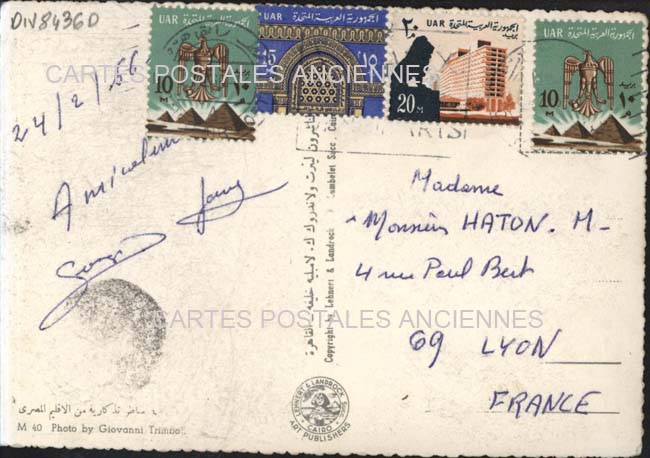 DIV8436D
24/2/56
Amicalement
UAR الجمهورية العربية المتحدة
10 M ١٠ م بريد
UAR الجمهورية العربية المتحدة
15 ١٥
٢٠ UAR الجمهورية العربية المتحدة
بريد
20 M
UAR الجمهورية العربية المتحدة
10 M ١٠ م بريد
CARTES POSTALES ANCIENNES
Madame
Monsieur HATON. M-
4 rue Paul Bert
69 LYON
FRANCE
CARTES POSTALES ANCIENNES
Copyright by Lehnert & Landrock Succ. Cairo
لينرت ولاندروك ك. لامبليه خليفة القاهرة
مناظر تذكارية من الاقليم المصرى
M 40 Photo by Giovanni
LEHNERT & LANDROCK SUCC.
CAIRO
ART PUBLISHERS